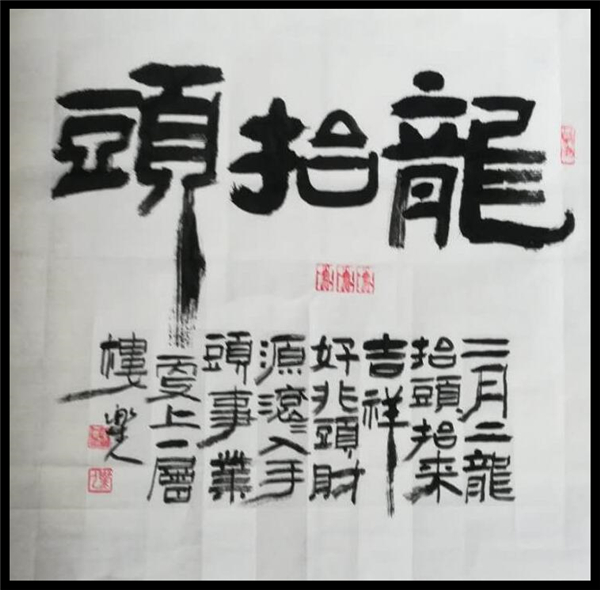 龍抬頭
二月二龍
抬頭抬来
吉祥
好兆頭財
源滚〻入手
頭事業
更上一層
樓